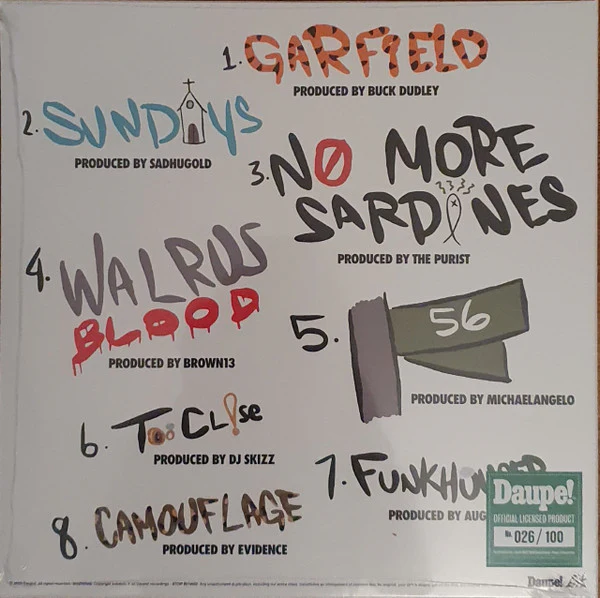 1. GARFIELD
PRODUCED BY BUCK DUDLEY
2. SUNDAYS
PRODUCED BY SADHUGOLD
3. NO MORE
SARDINES
PRODUCED BY THE PURIST
4. WALRUS
BLOOD
PRODUCED BY BROWN13
5. 56
PRODUCED BY MICHAELANGELO
6. Too Close
PRODUCED BY DJ SKIZZ
7. FUNKHUNGER
PRODUCED BY AUG
8. CAMOUFLAGE
PRODUCED BY EVIDENCE
Daupe!
OFFICIAL LICENSED PRODUCT
No. 026 / 100
Daupe!